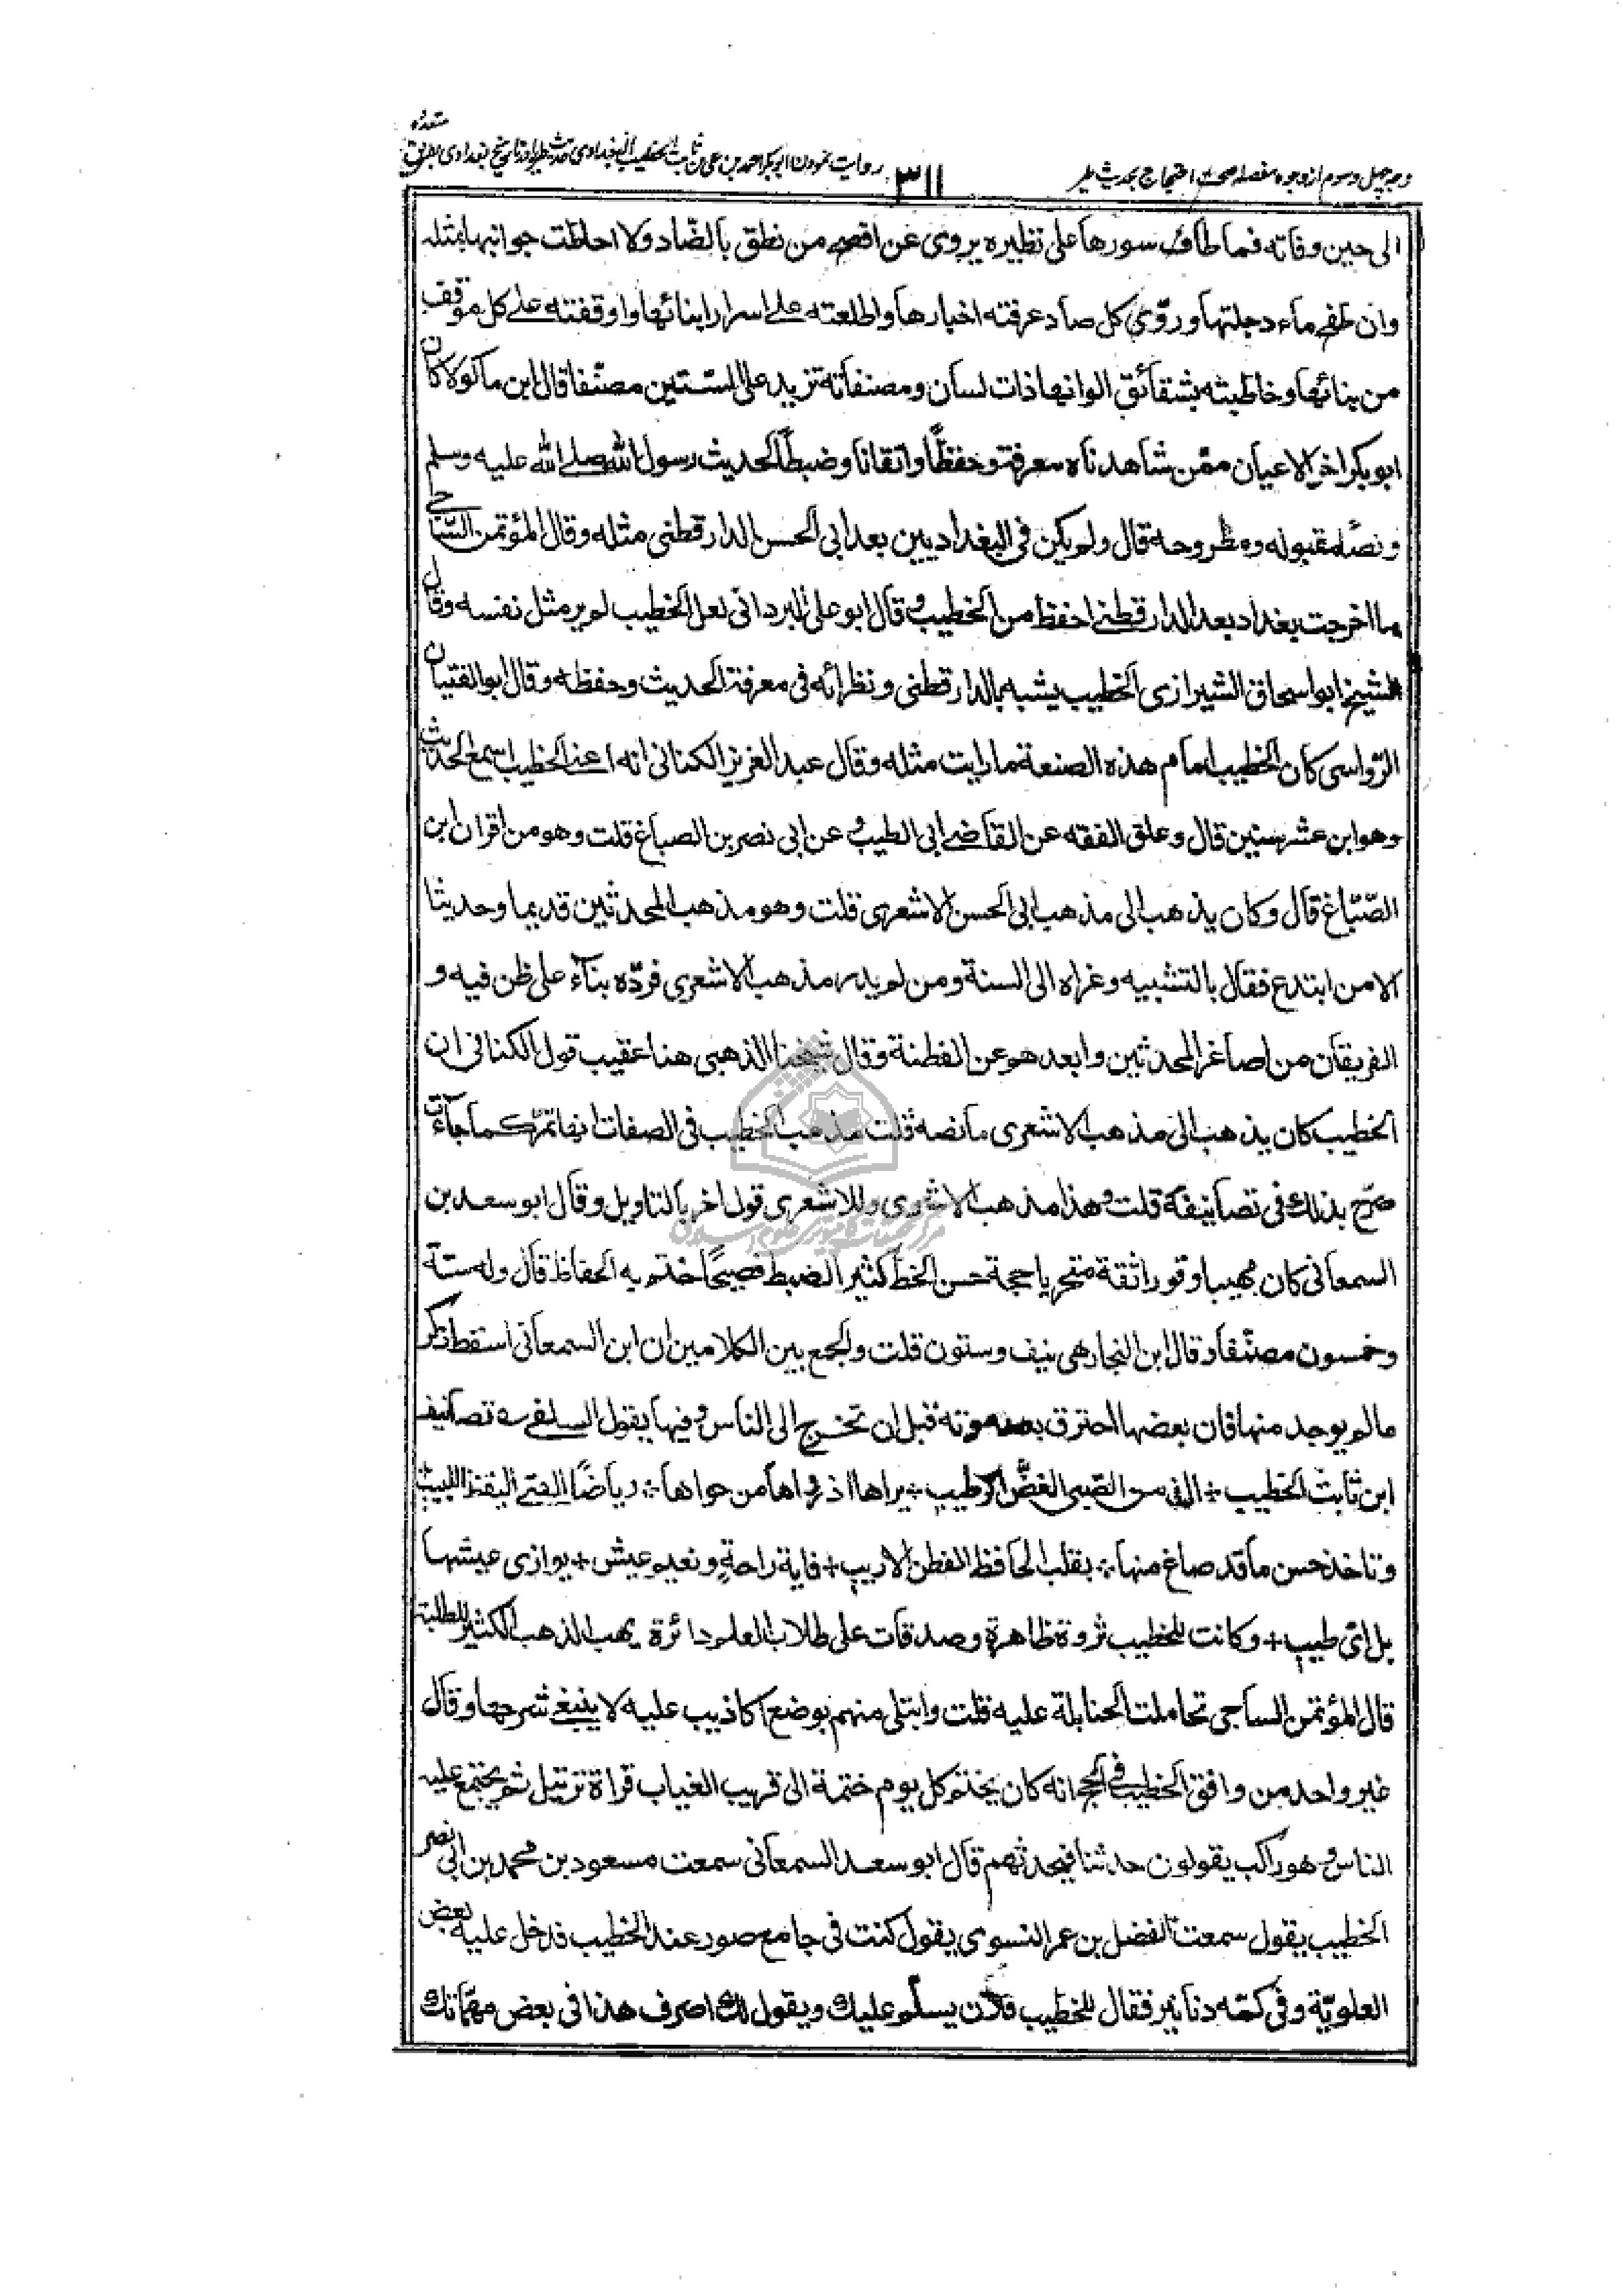 وجه چهل و سوم از وجوه مفصله صحت احتجاج بحديث طير
٣١١
روايت نمودن ابو بكر احمد بن على بن ثابت الخطيب البغدادى حديث طير را در تاريخ بغدادى بطريق
متعدده
الى حين وفاته فما طاف سورها على نظيره يروى عن افصح من نطق بالضاد ولا احاطت جوانبها بمثله
وان طفى ماء دجلتها وروّى كل صاد عرفته اخبارها واطلعته على اسرار ابنائها واوقفته على كل موقف
من بنائها وخاطبته بشقائق الوانها ذات لسان ومصنفاته تزيد على الستين مصنّفا قال ابن ماكولا كان
ابو بكر اخر الاعيان ممّن شاهدناه معرفة وحفظًا واتقانا وضبطاً لحديث رسول الله صلى الله عليه وسلم
ونصّه مقبوله ومطروحه قال ولم يكن فى البغداديين بعد ابى الحسن الدارقطنى مثله وقال المؤتمن السّاجى
ما اخرجت بغداد بعد الدارقطنى احفظ من الخطيب وقال ابو على البردانى لعل الخطيب لم ير مثل نفسه وقال
الشيخ ابو اسحاق الشيرازى الخطيب يشبه بالدارقطنى ونظرائه فى معرفة الحديث وحفظه وقال ابو الفتيان
الرّواسى كان الخطيب امام هذه الصنعة ما رايت مثله وقال عبد العزيز الكتانى انه اعنى الخطيب اسمع الحديث
وهو ابن عشر سنين قال وعلق الفقه عن القاضى ابى الطيب و عن ابى نصر بن الصباغ قلت وهو من اقران ابن
الصّبّاغ قال وكان يذهب الى مذهب ابى الحسن الاشعرى قلت وهو مذهب المحدثين قديما وحديثا
الا من ابتدع فقال بالتشبيه وعزاه الى السنة ومن لم يدر مذهب الاشعرى فردّه بناء على ظن فيه و
الفريقان من اصاغر المحدثين وابعدهم عن الفطنة وقال شيخنا الذهبى هنا عقيب قول الكتانى ان
الخطيب كان يذهب الى مذهب الاشعرى ما نصه قلت مذهب الخطيب فى الصفات انها تمرّ كما جاءت
صرّح بذلك فى تصانيفه قلت وهذا مذهب الاشعرى وللاشعرى قول اخر بالتاويل وقال ابو سعد بن
السمعانى كان مهيبا وقورا ثقة متحريا حجة حسن الخط كثير الضبط فصيحاً ختم به الحفاظ قال وله ستة
وخمسون مصنّفا وقال ابن النجار هى نيف وستون قلت والجمع بين الكلامين ان ابن السمعانى اسقط ذكر
ما لم يوجد منها فان بعضها احترق بعد موته قبل ان تخرج الى الناس وفيها يقول السلفى ÷ تصانيف
ابن ثابت الخطيب ÷ الذ من الصّبى الغضّ الرطيب ÷ يراها اذ رواها من حواها ÷ رياضًا للفتى اليقظ اللبيب
وتاخذ حسن ما قد صاغ منها ÷ بقلب الحافظ الفطن الاريب + فاية راحةٍ ونعيم عيش + يوازى عيشها
بل اى طيب + وكانت للخطيب ثروة ظاهرة وصدقات على طلاب العلم دائرة يهب الذهب الكثير للطلبة
قال المؤتمن الساجى تحاملت الحنابلة عليه قلت وابتلى منهم بوضع اكاذيب عليه لا ينبغى شرحها وقال
غير واحد من وافق الخطيب فى الحج انه كان يختم كل يوم ختمة الى قريب الغياب قراة ترتيل ثم يجتمع عليه
الناس وهو راكب يقولون حدثنا فيحدثهم قال ابو سعد السمعانى سمعت مسعود بن محمد بن ابى نصر
الخطيب يقول سمعت الفضل بن عمر النسوى يقول كنت فى جامع صور عند الخطيب فدخل عليه بعض
العلويّة وفى كمّه دنانير فقال للخطيب فلان يسلّم عليك ويقول لك اصرف هذا فى بعض مهمّاتك